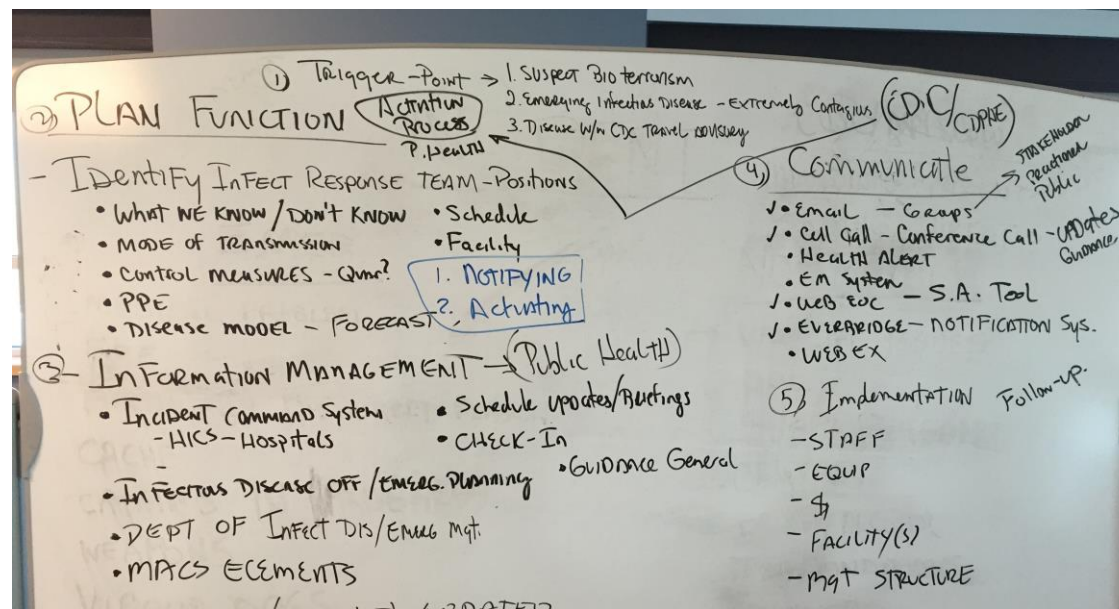 ① Trigger-Point → 1. Suspect Bioterrorism
2. Emerging Infectious Disease - Extremely Contagious
3. Disease w/n CDC Travel advisory
(CDC/CDPHE)
② PLAN FUNCTION
Activation Process
P. Health
- Identify Infect Response Team-Positions
• What we know/Don't know
• Mode of Transmission
• Control measures -
• PPE
• Disease model - Forecast
• Schedule
• Facility
1. Notifying
2. Activating
③- Information Management → (Public Health)
• Incident Command System
- HICS - Hospitals
• Infectious Disease Off/Emerg. Planning
• Dept of Infect Dis/Emerg Mgt.
• MACS Elements
• Schedule updates/Briefings
• Check-In
• Guidance General
④ Communicate
✓• Email - Groups
Stakeholder
Public
✓• Cell Call - Conference Call - Updates
Guidance
• Health Alert
• EM System
✓• Web EOC - S.A. Tool
✓• Everbridge - Notification Sys.
• WebEx
⑤ Implementation Follow-up.
- Staff
- Equip
- $
- Facility(s)
- Mgt Structure